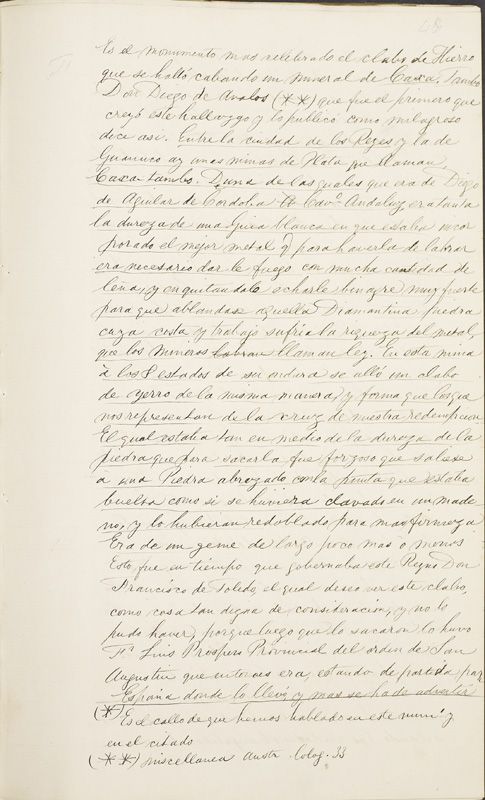 48
Es el monumento mas celebrado el clabo de Hierro
que se halló cabando un mineral de Caxa-Tambo
Don Diego de Avalos (**) que fue el primero que
creyó este hallazgo y lo publicó como milagroso
dice asi. Entre la ciudad de los Reyes y la de
Guanuco ay unas minas de Plata que llaman
Caxa-tambo. Duna de las quales que era de Diego
de Aguilar de Cordoba Cavo. Andaluz, era tanta
la dureza de una Guia blanca en que estaba incor
porado el mejor metal q para haverla de labrar
era necesario dar le fuego con mucha cantidad de
leña, y en quitandolo echarle binagre muy fuerte
para que ablandase aquella Diamantina piedra
cuza costa y trabajo sufria la riqueza del metal,
que los mineros llaman lez. En esta mina
à los 8 estados de su ondura se alló un clabo
de yerro de la misma manera, y forma que los que
nos representan de la cruz de nuestra redempcion
El qual estaba tan en medio de la dureza de la
piedra que para sacarla fue forzoso que saliese
à una Piedra abrazado con la punta que estaba
buelta como si se huviera clavado en un made
ro, y lo hubieran redoblado para mas firmeza
Era de un geme de largo poco mas o menos
Esto fue en tiempo que gobernaba este Reyno Don
Francisco de Toledo, el qual deseo ver este clabo,
como cosa tan digna de consideracion, y no le
pudo haver, porque luego que lo sacaron lo huvo
Fr. Luis Prospero Provincial del orden de San
Augustin que entonces era, estando de partida para
España donde lo llevó y mas se ha de advertir
(*) Es el callo de que hemos hablado en este num. y
en el citado
(**) Miscellanea Austr. Coloq. 33